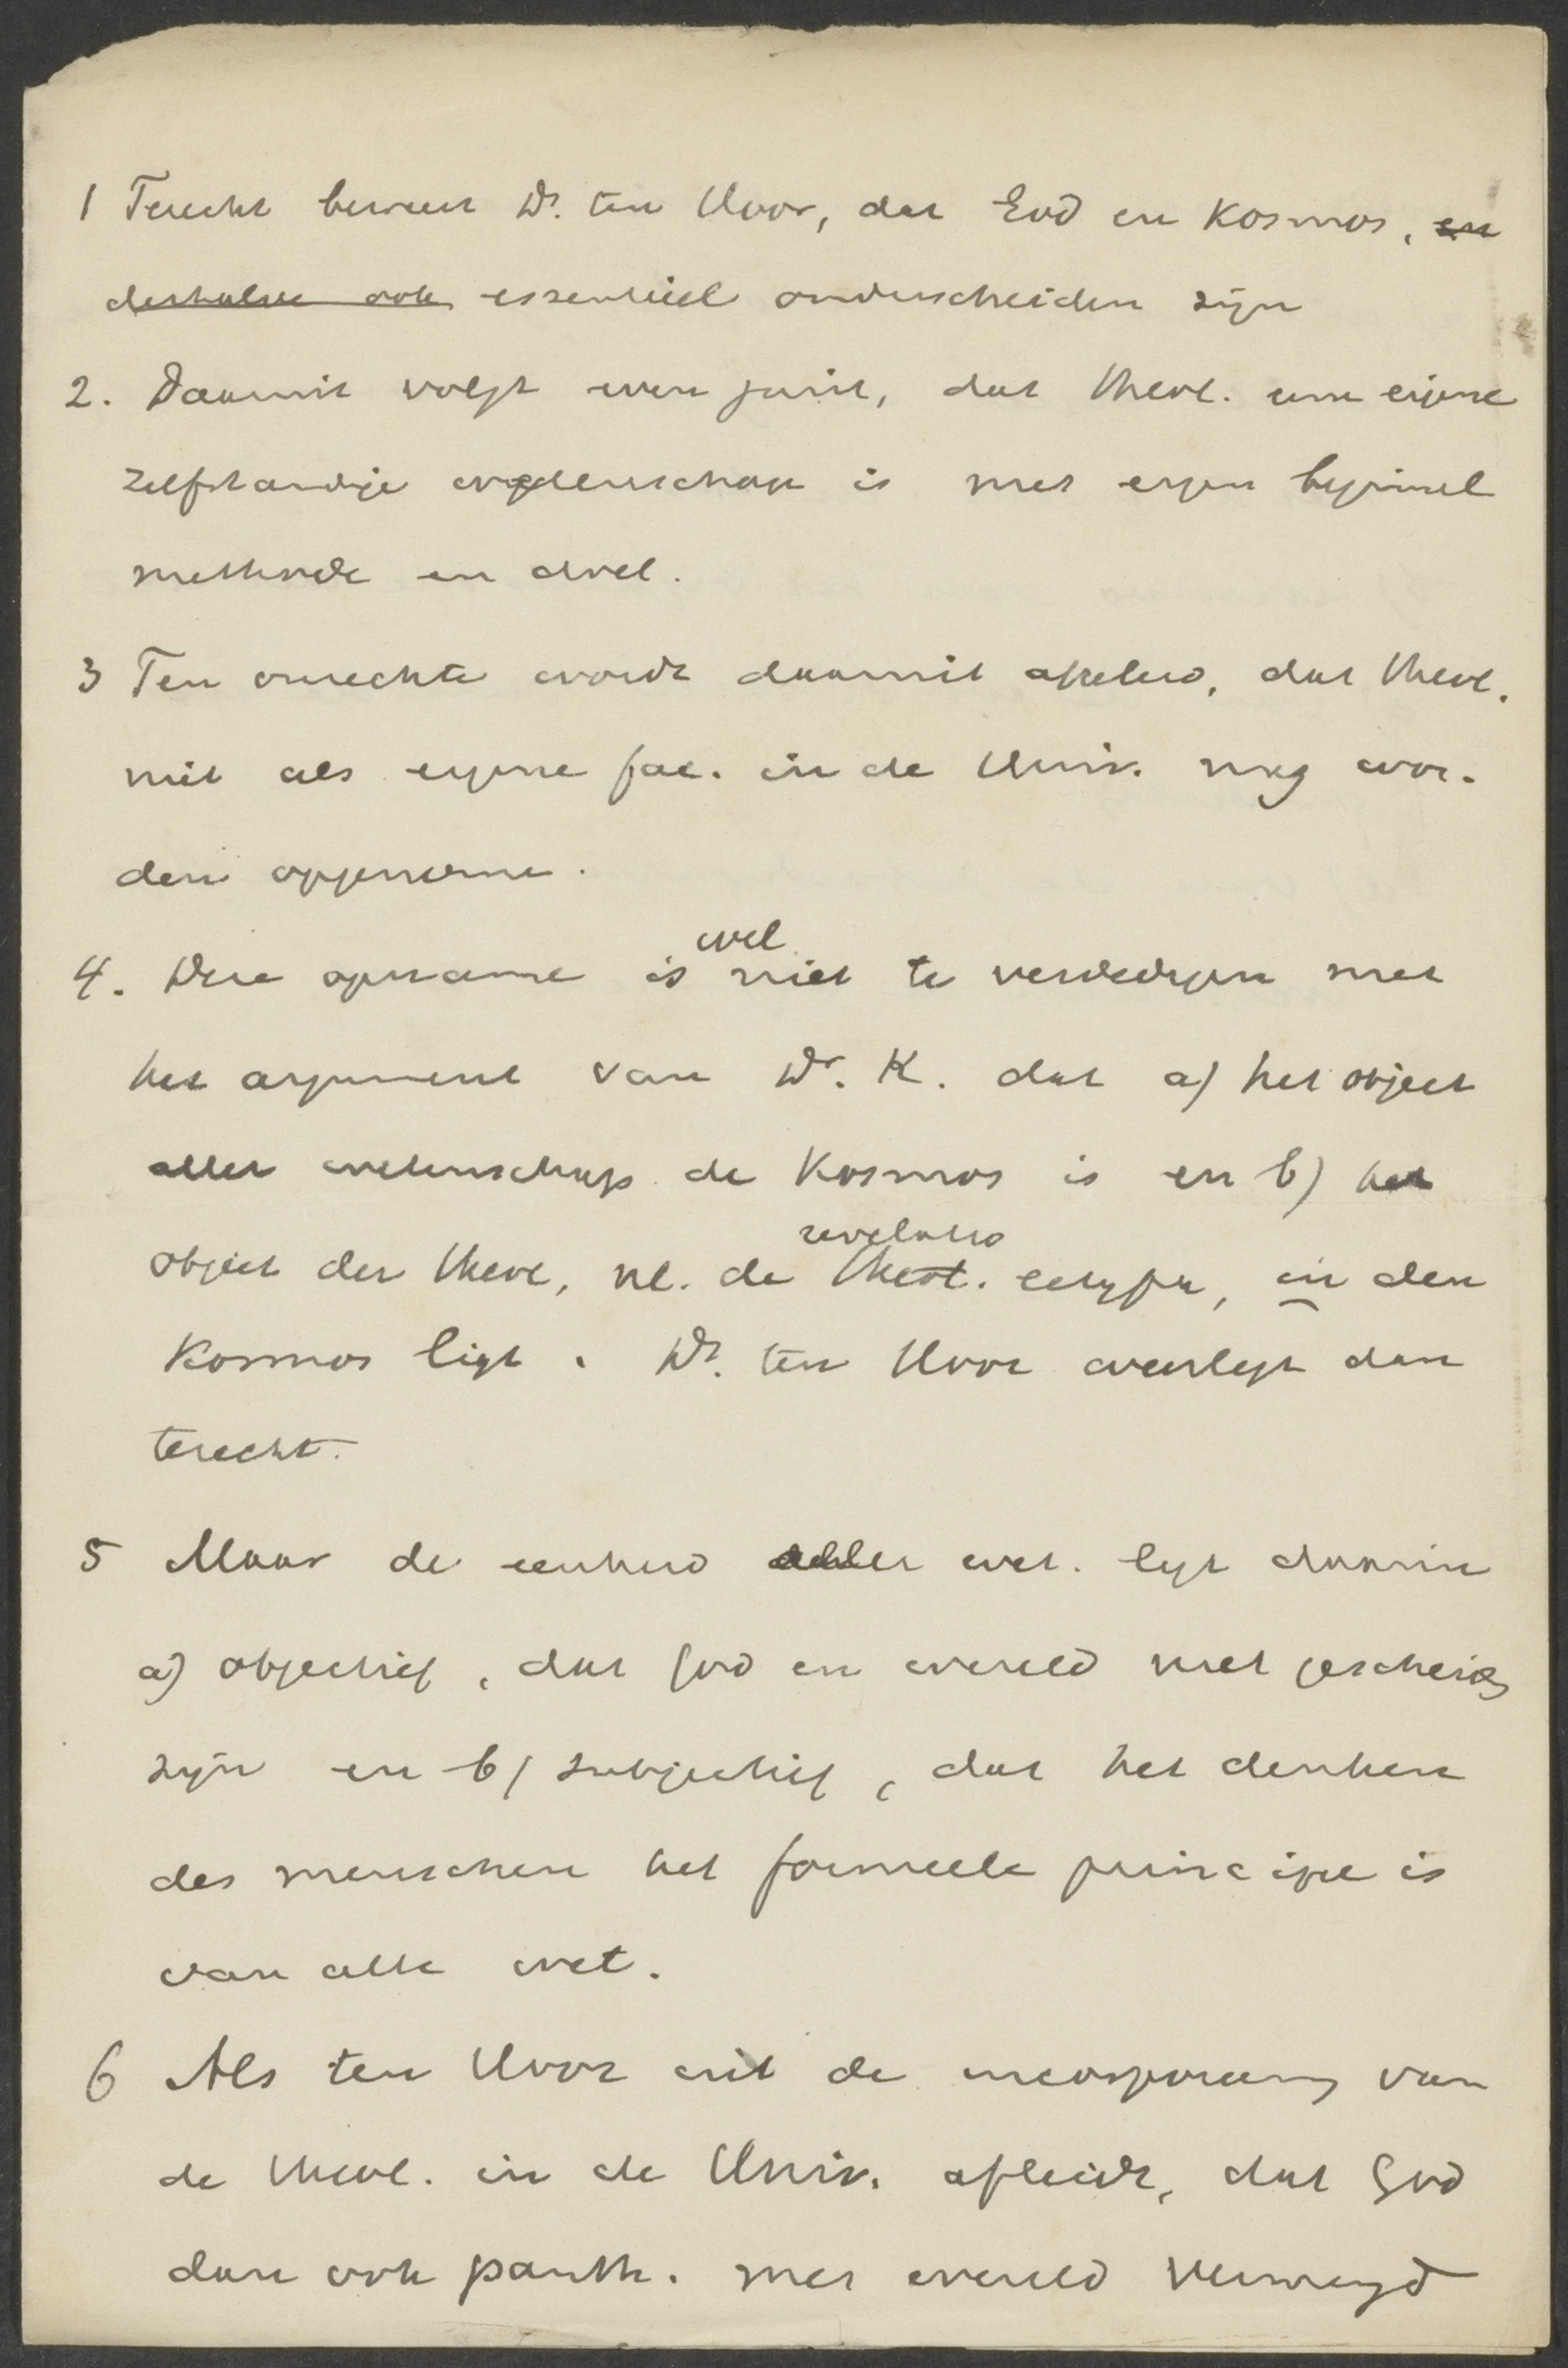 1 Terecht beweert Dr. ten Hoor, dat God en Kosmos, en
derhalve ook essentieel onderscheiden zijn
2. Daaruit volgt even juist, dat theol. een eigene
zelfstandige wetenschap is met eigen beginsel
methode en doel.
3 Ten onrechte wordt daaruit afgeleid, dat theol.
niet als eigene fac. in de Univ. mag wor-
den opgenomen.
4. Deze opname is wel niet te verdedigen met
het argument van Dr. K. dat a) het object
aller wetenschap de Kosmos is en b) het
object der theol, nl. de theol. revelatio ectypa, in den
Kosmos ligt. Dr. ten Hoor weerlegt dan
terecht.
5 Maar de eenheid aller wet. ligt daarin
a) objectief, dat God en wereld niet gescheiden
zijn en b) subjectief, dat het denken
des menschen het formeele principe is
van alle wet.
6 Als ten Hoor uit de incorporeering van
de theol. in de Univ. afleidt, dat God
dan ook panth. met wereld vermengd